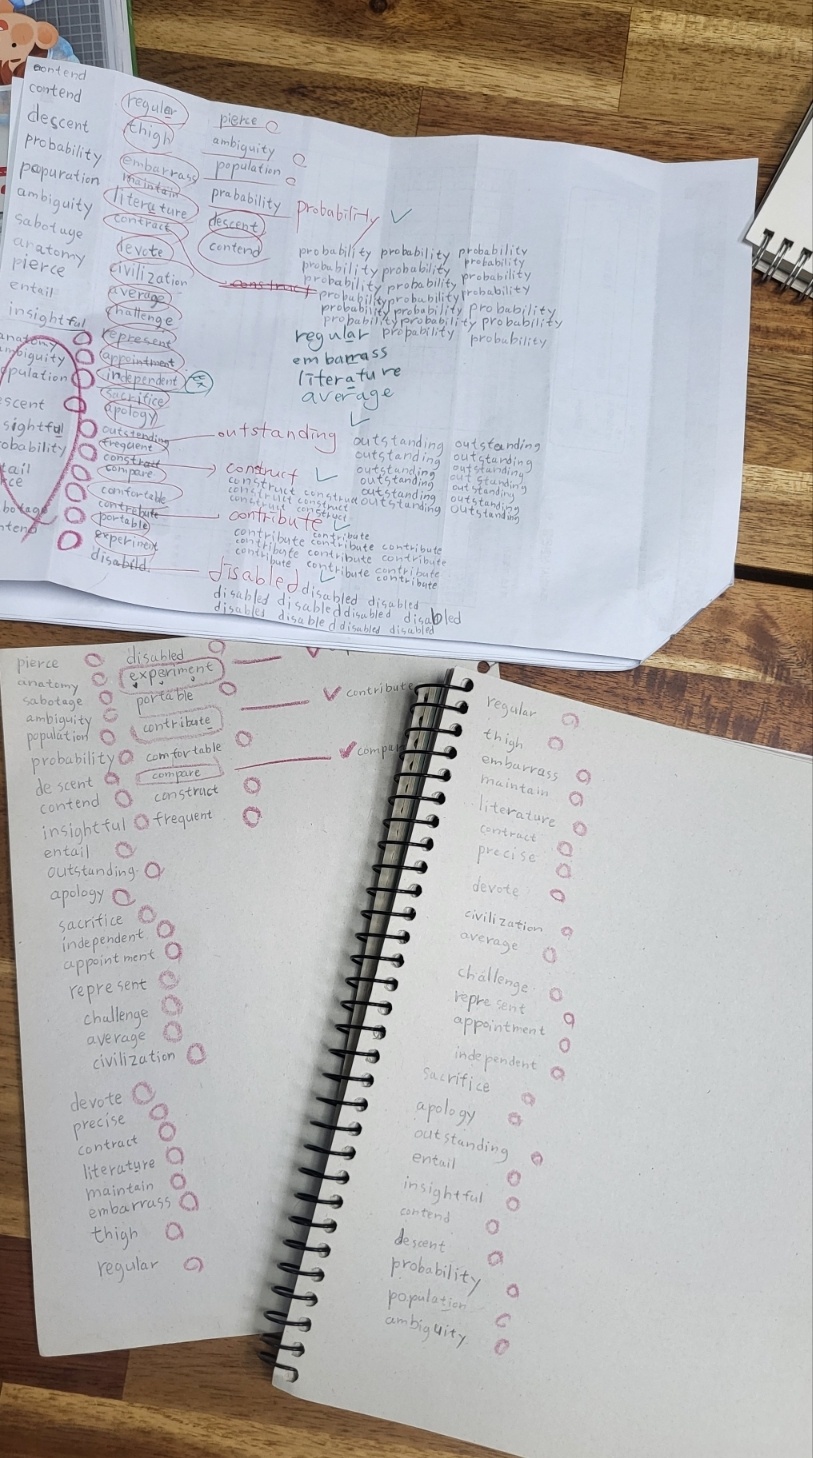 contend
contend
descent
probability
popuration
ambiguity
sabotage
anatomy
pierce
entail
insightful
regular
thigh
embarrass
maintain
literature
contract
devote
civilization
average
challenge
represent
appointment
independent
sacrifice
apology
outstanding
frequent
construct
compare
comfortable
contribute
portable
experiment
pierce
ambiguity
population
prabability
descent
contend
probability
construct
probability probability probability
probability probability probability
probability probability probability
probability probability probability
probability probability probability
probability probability probability
probability probability probability
probability probability
regular
embarrass
literature
average
outstanding
outstanding outstanding
outstanding outstanding
outstanding outstanding
outstanding outstanding
outstanding outstanding
outstanding outstanding
outstanding
construct
construct construct
construct construct
construct construct
contribute
contribute contribute
contribute contribute contribute
contribute contribute contribute
contribute contribute contribute
contribute
disabled
disabled disabled
disabled disabled disabled disabled
disabled disabled disabled disabled
pierce
anatomy
sabotage
ambiguity
population
probability
descent
contend
insightful
entail
outstanding
apology
sacrifice
independent
appointment
represent
challenge
average
civilization
devote
precise
contract
literature
maintain
embarrass
thigh
regular
disabled
experiment
portable
contribute
comfortable
compare
construct
frequent
contribute
regular
thigh
embarrass
maintain
literature
contract
precise
devote
civilization
average
challenge
represent
appointment
independent
sacrifice
apology
outstanding
entail
insightful
contend
descent
probability
population
ambiguity